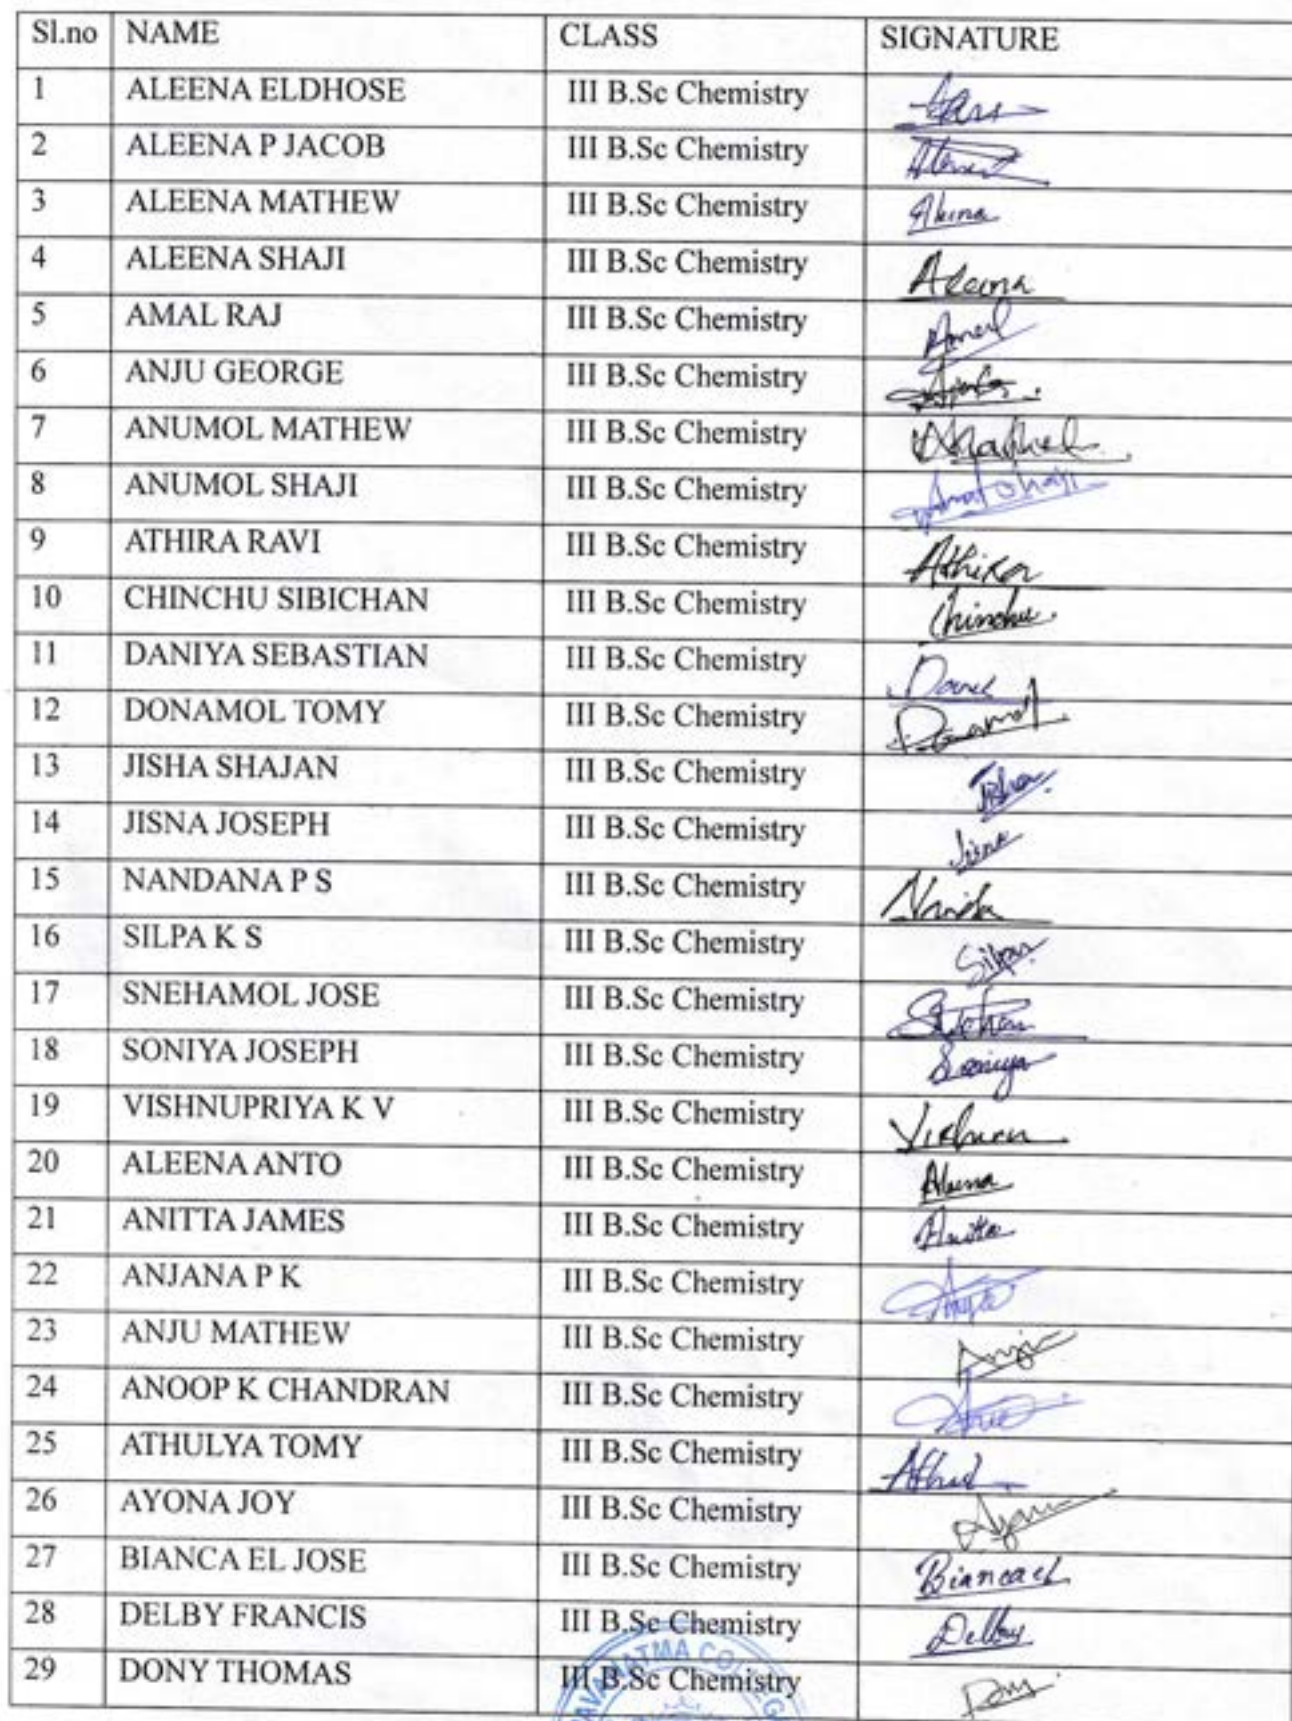 Sl.no NAME CLASS SIGNATURE
1 ALEENA ELDHOSE III B.Sc Chemistry
2 ALEENA P JACOB III B.Sc Chemistry
3 ALEENA MATHEW III B.Sc Chemistry
4 ALEENA SHAJI III B.Sc Chemistry Aleena
5 AMAL RAJ III B.Sc Chemistry Amal
6 ANJU GEORGE III B.Sc Chemistry
7 ANUMOL MATHEW III B.Sc Chemistry
8 ANUMOL SHAJI III B.Sc Chemistry
9 ATHIRA RAVI III B.Sc Chemistry Athira
10 CHINCHU SIBICHAN III B.Sc Chemistry Chinchu
11 DANIYA SEBASTIAN III B.Sc Chemistry
12 DONAMOL TOMY III B.Sc Chemistry Donamol
13 JISHA SHAJAN III B.Sc Chemistry Jisha
14 JISNA JOSEPH III B.Sc Chemistry Jisna
15 NANDANA P S III B.Sc Chemistry
16 SILPA K S III B.Sc Chemistry Silpa
17 SNEHAMOL JOSE III B.Sc Chemistry
18 SONIYA JOSEPH III B.Sc Chemistry Soniya
19 VISHNUPRIYA K V III B.Sc Chemistry
20 ALEENA ANTO III B.Sc Chemistry Aleena
21 ANITTA JAMES III B.Sc Chemistry Anitta
22 ANJANA P K III B.Sc Chemistry
23 ANJU MATHEW III B.Sc Chemistry Anju
24 ANOOP K CHANDRAN III B.Sc Chemistry
25 ATHULYA TOMY III B.Sc Chemistry Athul
26 AYONA JOY III B.Sc Chemistry
27 BIANCA EL JOSE III B.Sc Chemistry Bianca el
28 DELBY FRANCIS III B.Sc Chemistry Delby
29 DONY THOMAS III B.Sc Chemistry Dony